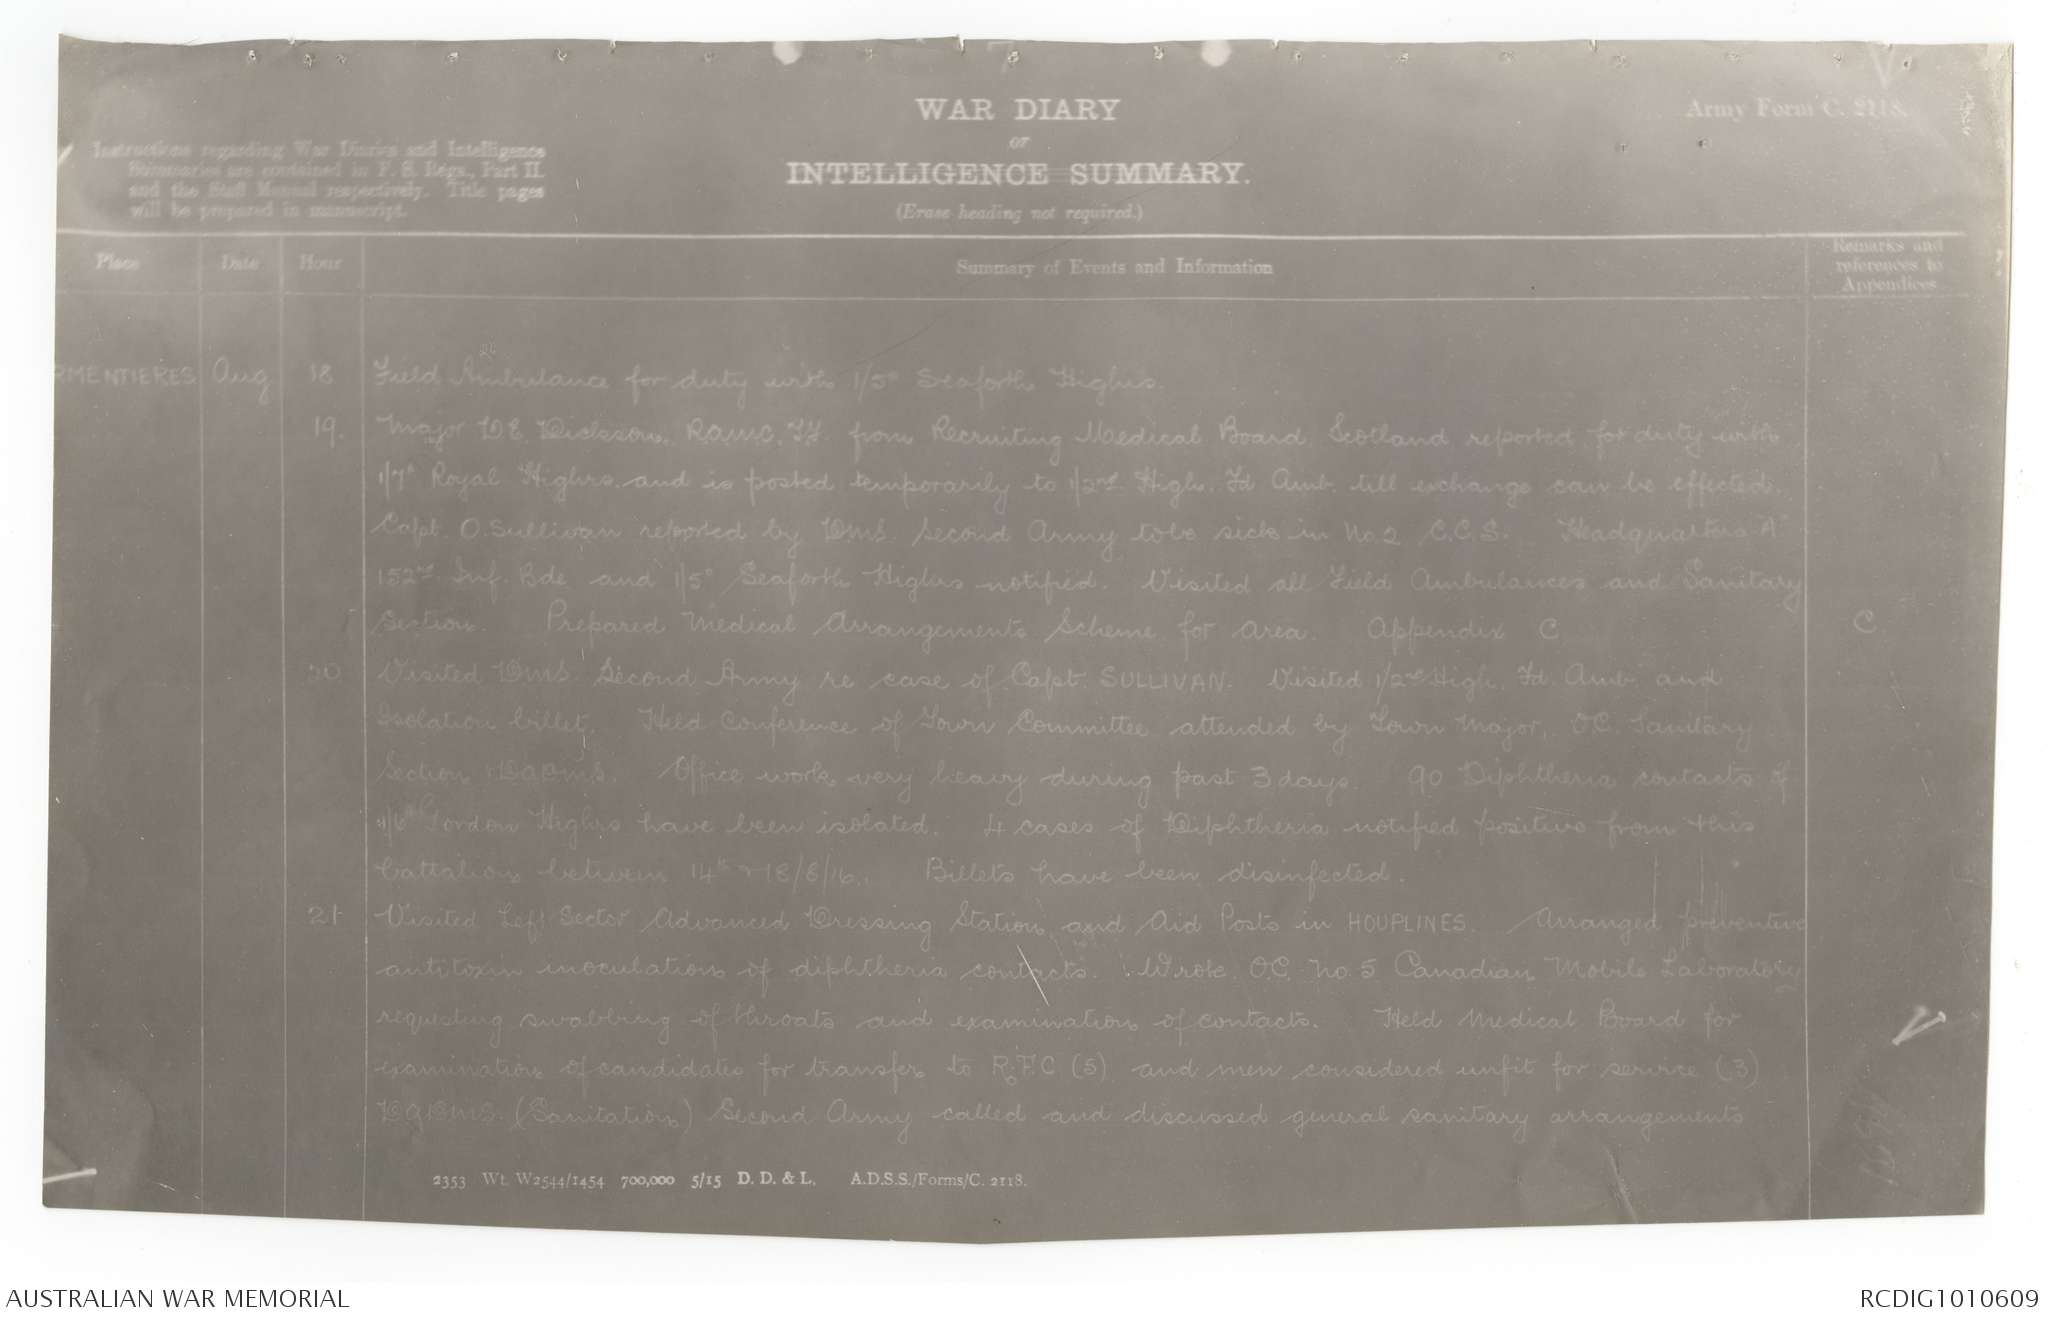 WAR DIARY
or
INTELLIGENCE SUMMARY.
(Erase heading not required.)
Army Form C. 2118.
Instructions regarding War Diaries and Intelligence
Summaries are contained in F. S. Regs., Part II.
and the Staff Manual respectively. Title pages
will be prepared in manuscript.
Place Date Hour Summary of Events and Information Remarks and
references to
Appendices
RMENTIERES Aug 18 Field Ambulance for duty with 1/5th Seaforth Highrs.
19. Major H.E. Dickson, RAMC, T.F. from Recruiting Medical Board Scotland reported for duty with
1/7th Royal Highrs. and is posted temporarily to 1/2nd High. Fd Amb. till exchange can be effected.
Capt. O.Sullivan reported by DMS. Second Army to be sick in No.2 C.C.S. Headquarters "A"
152nd Inf. Bde and 1/5th Seaforth Highrs notified. Visited all Field Ambulances and Sanitary
Section. Prepared Medical Arrangements Scheme for area. Appendix C C
20 Visited DMS. Second Army re case of Capt. SULLIVAN. Visited 1/2nd High. Fd. Amb. and
Isolation billet. Held Conference of Town Committee attended by Town Major, O.C. Sanitary
Section & DADMS. Office work very heavy during past 3 days. 90 Diphtheria contacts of
1/6th Gordon Highrs have been isolated. 4 cases of Diphtheria notified positive from this
battalion between 14th & 18/8/16. Billets have been disinfected.
21 Visited Left Sector Advanced Dressing Station and Aid Posts in HOUPLINES. Arranged preventive
antitoxin inoculation of diphtheria contacts. Wrote O.C. No. 5 Canadian Mobile Laboratory
requesting swabbing of throats and examination of contacts. Held Medical Board for
examination of candidates for transfer to R.F.C (5) and men considered unfit for service (3)
(Sanitation) Second Army called and discussed general sanitary arrangements
2353 Wt. W2544/1454 700,000 5/15 D. D. & L. A.D.S.S./Forms/C. 2118.
AUSTRALIAN WAR MEMORIAL RCDIG1010609